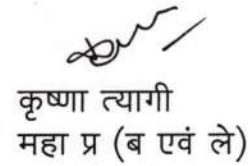 कृष्णा त्यागी
महा प्र (ब एवं ले)